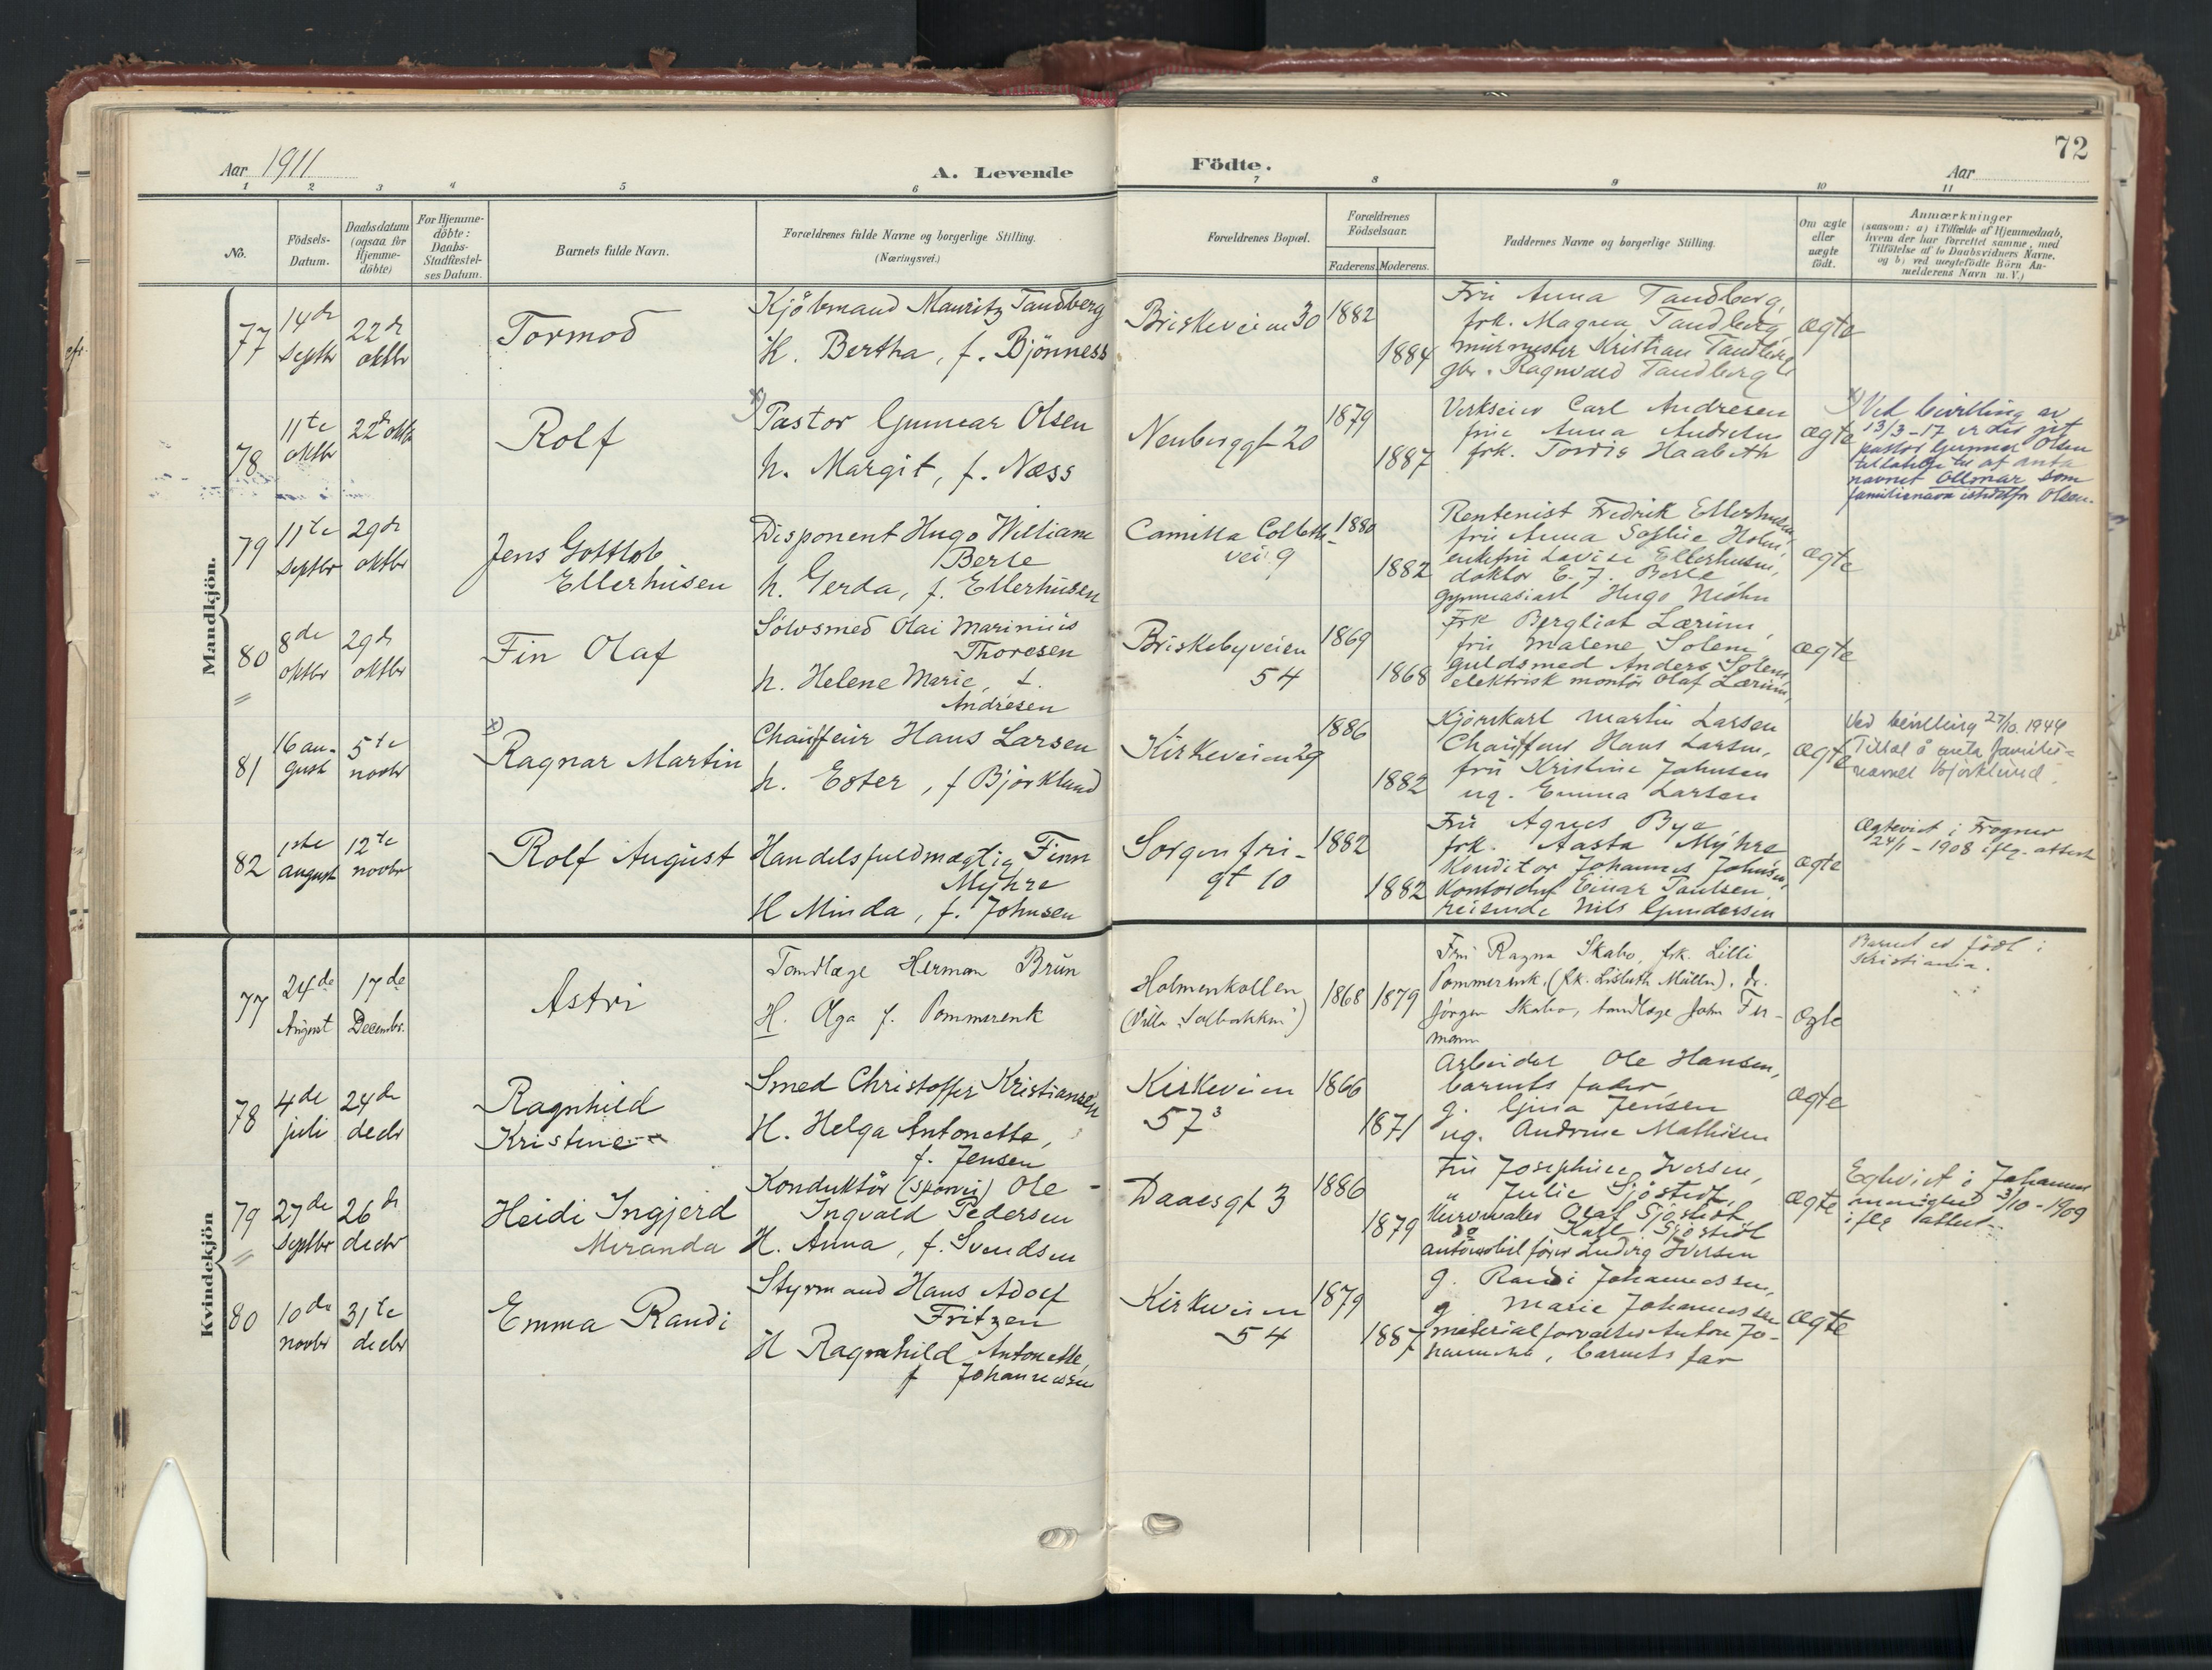 72
Aar 1911
A. Levende Födte.
Aar
1 2 3 4 5 6 7 8 9 10 11
No.
Födsels-Datum.
Daabsdatum (ogsaa for Hjemme-döbte)
For Hjemme-döbte: Daabs-Stadfæstel-ses Datum.
Barnets fulde Navn.
Forældrenes fulde Navne og borgerlige Stilling.
(Næringsvei.)
Forældrenes Bopæl.
Forældrenes Födselsaar.
Faderens. Moderens.
Faddernes Navne og borgerlige Stilling.
Om ægte eller uægte födt.
Anmærkninger
(saasom: a) i Tilfælde af Hjemmedaab,
hvem der har forrettet samme, med
Tilföielse af to Daabsvidners Navne,
og b) ved uægtefödte Börn An-
melderens Navn m. V.)
Mandkjön.
77
14de septbr
22de oktbr
Tormod
Kjöbmand Mauritz Tandberg
H. Bertha, f. Bjönness
Briskeveien 30
1882
1884
Fru Anna Tandberg,
frk. Magna Tandberg
murmester Kristian Tandberg
gbr. Ragnvald Tandberg
ægte
78
11te oktbr
22de oktb
Rolf
x) Pastor Gunnar Olsen
h. Margit, f. Næss
Neuberggt 20
1879
1887
Verkseier Carl Andresen
frue Anna Andresen
frk. Tordis Haabeth
ægte
x) Ved bevilling av
13/3-17 er det git
pastor Gunnar Olsen
tilladelse til at anta
navnet Ollmar som
familienavn istedetfor Olsen.
79
11te septbr
29de oktbr
Jens Gottlob
Ellerhusen
Disponent Hugo William
Berle
h. Gerda, f. Ellerhusen
Camilla Colletts
vei 9
1880
1882
Rentenist Fredrik Ellerhusen,
fru Anna Sophie Holm,
enkefru Lovise Ellerhusen,
doktor E. J. Berle
gymnasiast Hugo
ægte
80
8de oktbr
29de oktbr
Fin Olaf
Sölvsmed Olai Marinius
Thoresen
h. Helene Marie, f.
Andresen
Briskebyveien
54
1869
1868
Frk Bergliot Lærum,
fru Malene Solem
guldsmed Anders Solem,
elektrisk montör Olaf Lærum,
ægte
81
16 au-
gust
5te novbr
x)
Ragnar Martin
Chauffeur Hans Larsen
h. Ester, f Björklund
Kirkeveien 29
1886
1882
Kjörekarl Martin Larsen
Chauffeur Hans Larsen,
fru Kristine Johnsen
ug. Emma Larsen
ægte
Ved bevilling 27/10. 1944
Tillat å anta familie-
navnet Björklund.
82
1ste august
12te novbr
Rolf August
Handelsfuldmægtig Finn
Myhre
H Minda, f. Johnsen
Sorgenfri-
gt 10
1882
1882
Fru Agnes Bye
frk. Aasta Myhre
Konditor Johannes Johnsen,
Kontorchef Einar Paulsen,
reisende Nils Gundersen
ægte
Ægteviet i Frogner
24/1 - 1908 iflg. attest
Kvindekjön
77
24de August
17de Decembr.
Astri
Tandlæge Herman Brun
H. Olga f. Pommerenk
Holmenkollen
(Villa "Solbakken")
1868
1879
Fru Ragna Skabo, frk. Lilli
Pommerenk, (frk. Lisbeth Müller), dr.
Jörgen Skabo, tandlæge John Fer-
mann
ægte
Barnet er födt i
Kristiania.
78
4de juli
24de decbr
Ragnhild
Kristine
Smed Christoffer Kristiansen
H. Helga Antonette,
f. Jensen
Kirkeveien
57³
1866
1871
Arbeider Ole Hansen,
barnets fader,
g. Gina Jensen
ug. Andrine Mathisen
ægte
79
27de septbr
26de decbr
Heidi Ingjerd
Miranda
Konduktör (sporvei) Ole
Ingvald Pedersen
H. Anna, f. Svendsen
Daaesgt 3
1886
1879
Fru Josephine Iversen,
" Julie Sjöstedt,
Kurvmaker Olaf Sjöstedt
do Karl Sjöstedt
automobilförer Ludvig Iversen
ægte
Egteviet i Johannes
menighed 3/10 - 1909
iflg attest
80
10de novbr
31te decbr
Emma Randi
Styrmand Hans Adolf
Fritzen
H Ragnhild Antonette,
f Johannessen
Kirkeveien
54
1879
1887
g. Randi Johannessen,
g. Marie Johannessen
materialforvalter Anton Jo-
hannessen, barnets far
ægte